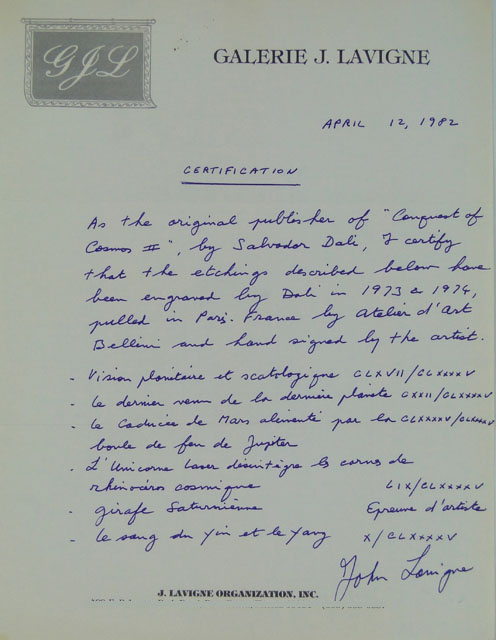 GJL
GALERIE J. LAVIGNE
APRIL 12, 1982
CERTIFICATION
As the original publisher of "Conquest of
Cosmos II", by Salvador Dali, I certify
that the etchings described below have
been engraved by Dali in 1973 & 1974,
pulled in Paris. France by Atelier d'Art
Bellini and hand signed by the artist.
- Vision planétaire et scatologique CLXVII/CLXXXXV
- Le dernier venu de la dernière planète CXXII/CLXXXXV
- Le Caducée de Mars alimenté par la CLXXXXV/CLXXXXV
boule de feu de Jupiter
- L'Unicorne laser désintègre les cornes de
rhinocéros cosmique LIX/CLXXXXV
- girafe Saturnienne Epreuve d'artiste
- Le sang du Yin et le Yang X/CLXXXXV
John Lavigne
J. LAVIGNE ORGANIZATION, INC.